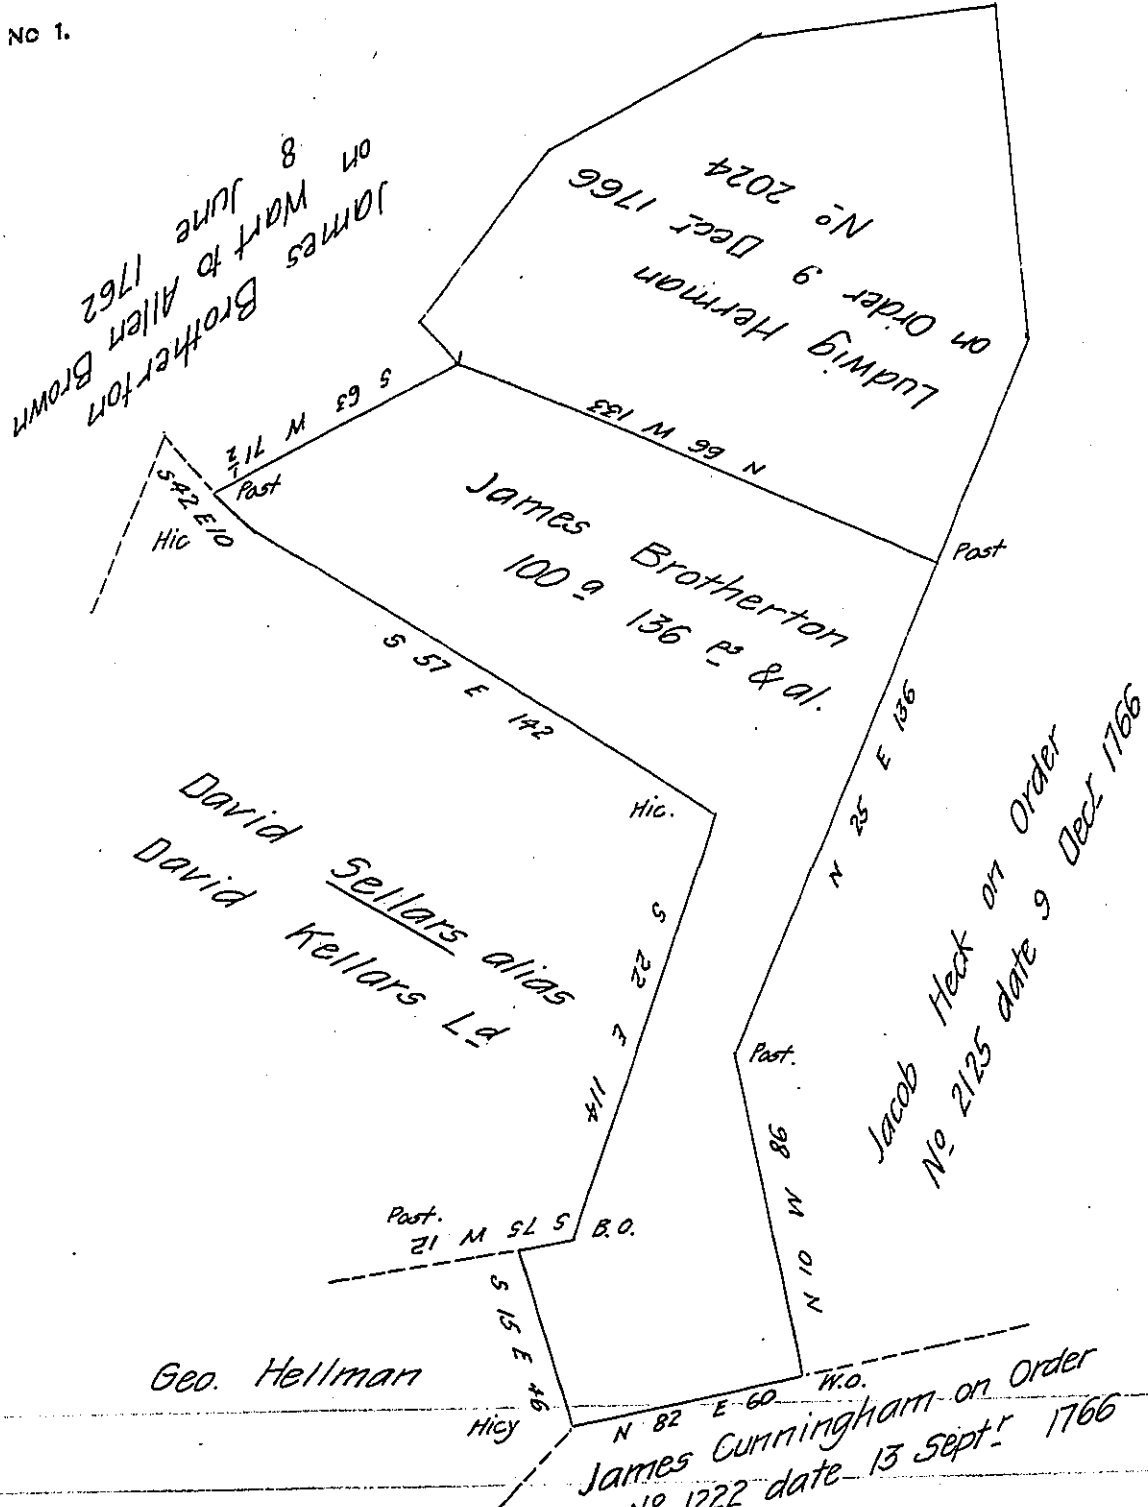 NO 1.
James Brotherton
on Warrt to Allen Brown
8 June 1762
Ludwig Herman
on Order 9 Decr 1766
Nº 2024
S 63 W 71½
Post
S 42 E 10
Hic
N 66 W 133
Post
James Brotherton
100 a 136 ps & al.
S 57 E 142
Hic.
N 25 E 136
David Sellars alias
David Kellars Ld
S 22 E 114
Jacob Heck on Order
Nº 2125 date 9 Decr 1766
Post.
N 10 W 86
Post.
S 75 W 12
B.O.
S 15 E 46
Geo. Hellman
Hicy
N 82 E 60
W.O.
James Cunningham on Order
Nº 1222 date 13 Septr 1766